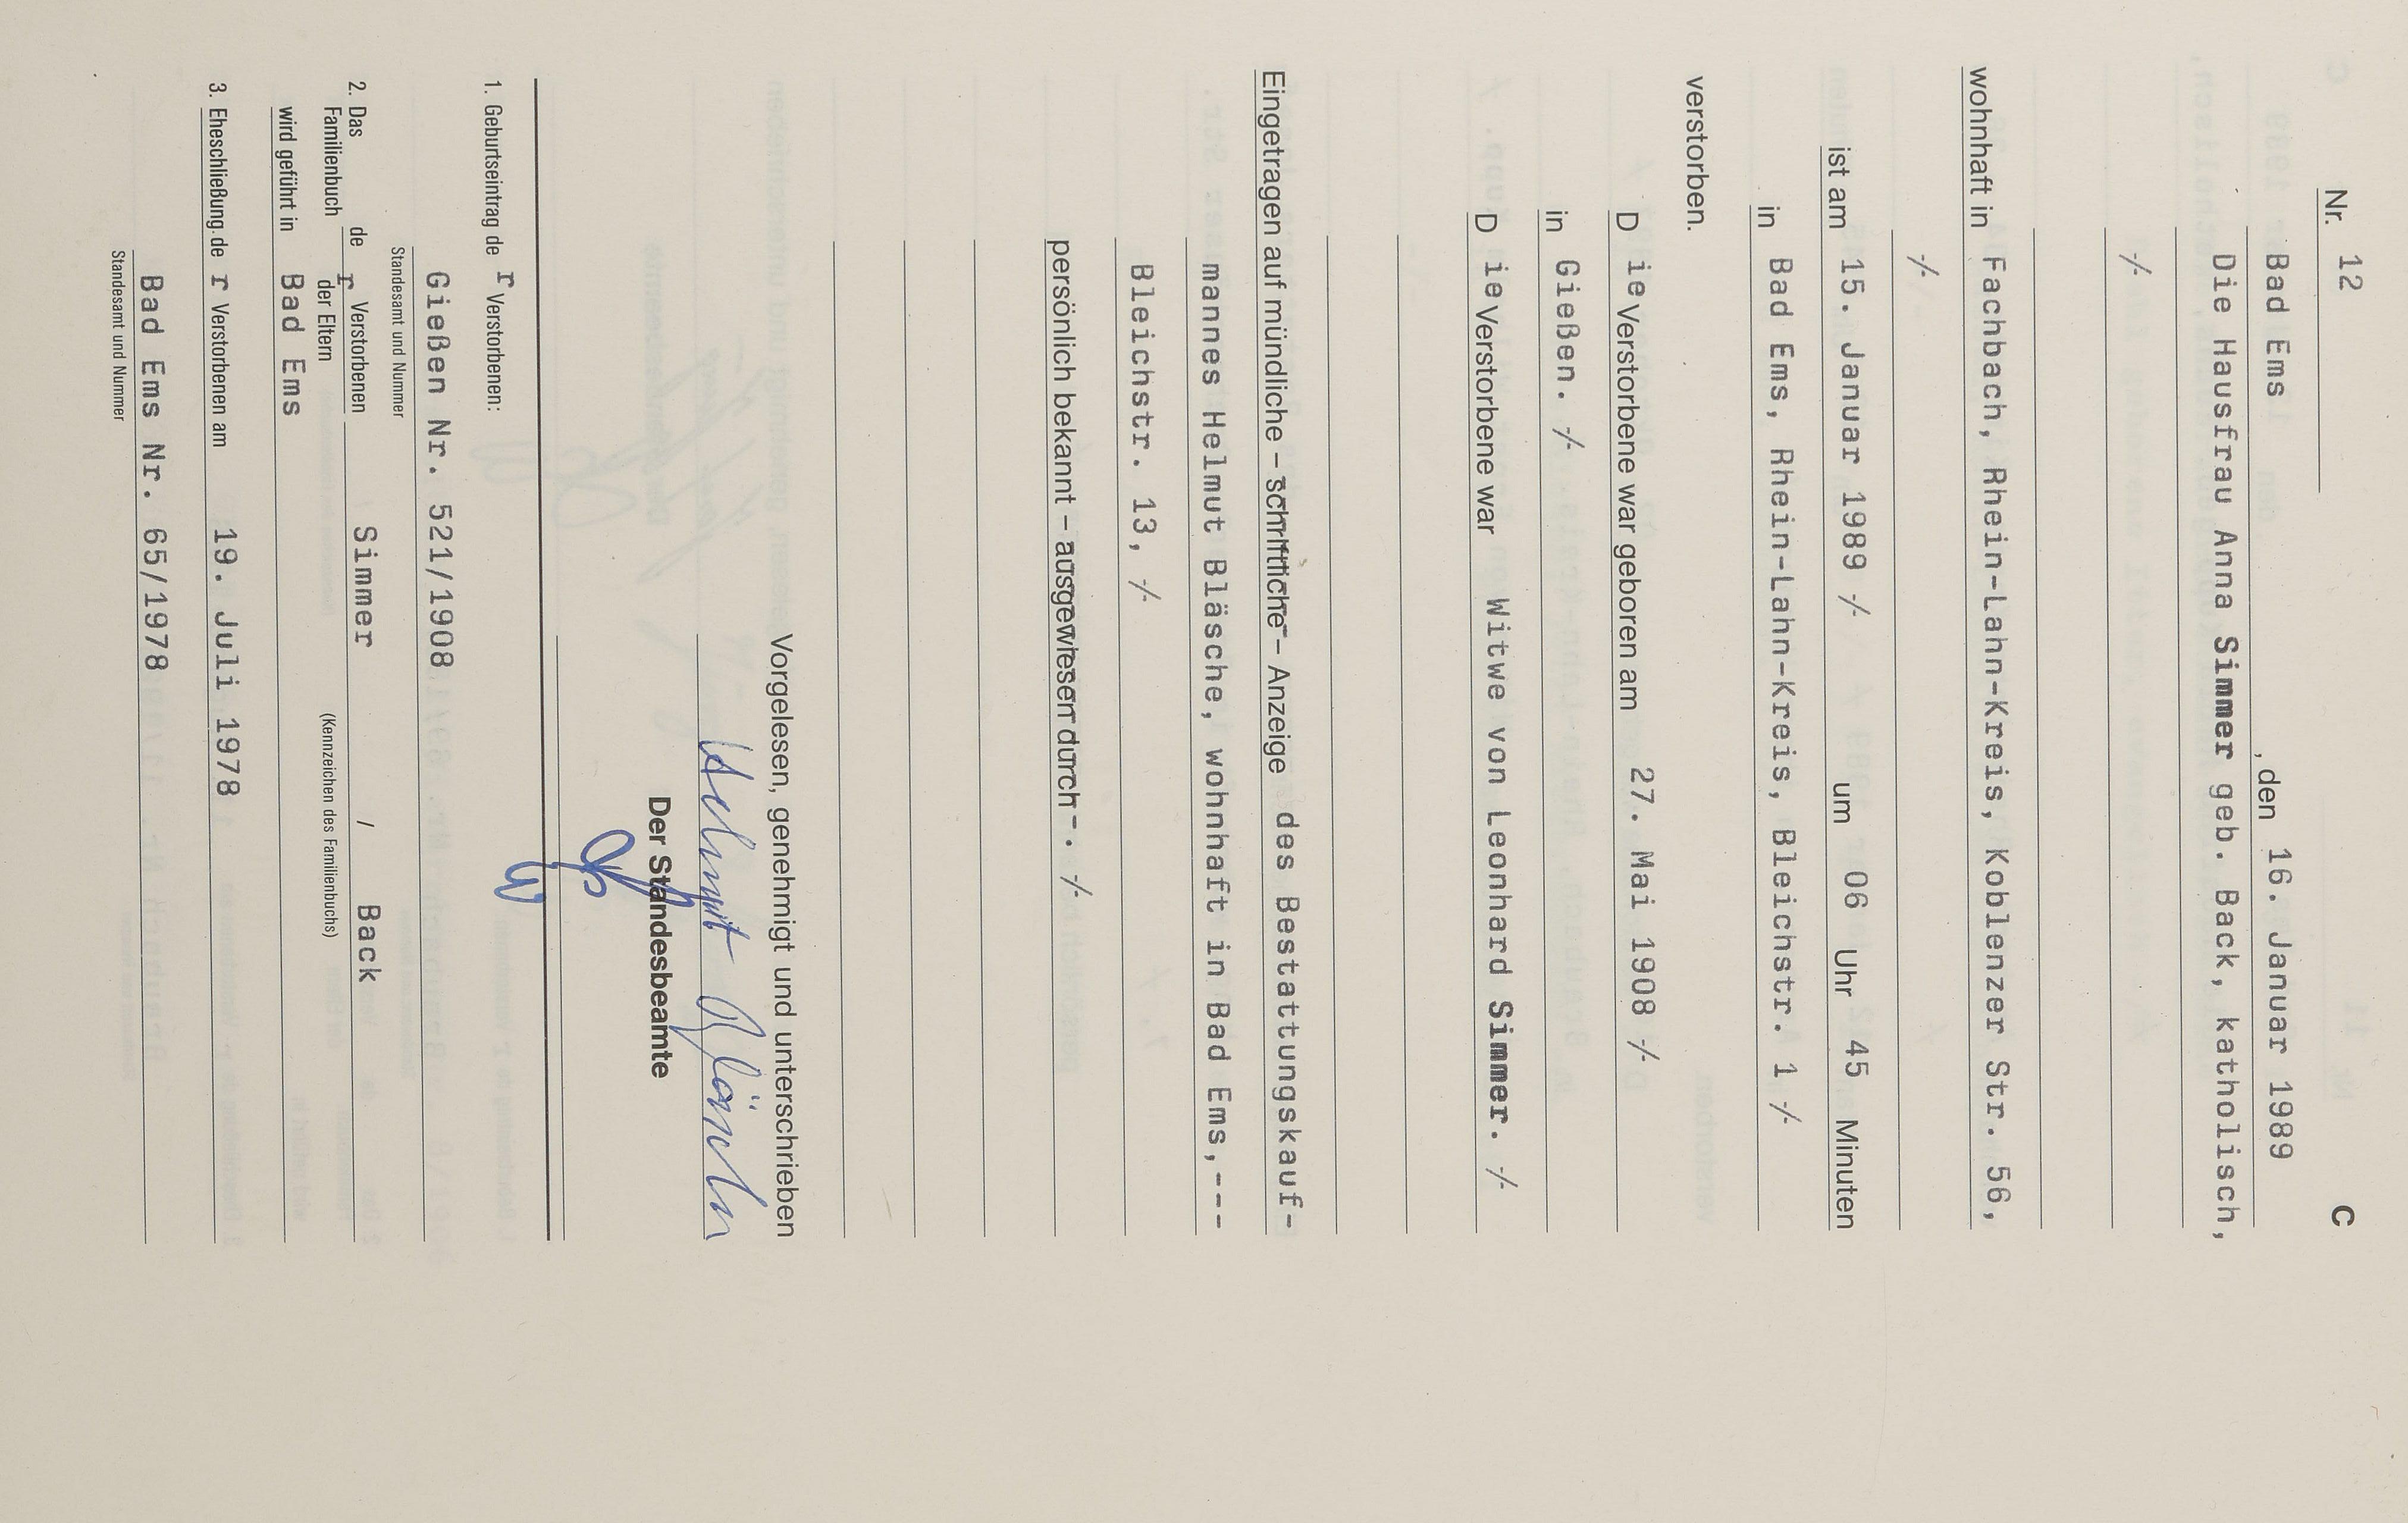 Nr. 12 C
Bad Ems, den 16. Januar 1989
Die Hausfrau Anna Simmer geb. Back, katholisch,
-/-
wohnhaft in Fachbach, Rhein-Lahn-Kreis, Koblenzer Str. 56,
-/-
ist am 15. Januar 1989 -/- um 06 Uhr 45 Minuten
in Bad Ems, Rhein-Lahn-Kreis, Bleichstr. 1 -/-
verstorben.
D ie Verstorbene war geboren am 27. Mai 1908 -/-
in Gießen. -/-
D ie Verstorbene war Witwe von Leonhard Simmer. -/-
Eingetragen auf mündliche – schriftliche – Anzeige des Bestattungskauf-
mannes Helmut Bläsche, wohnhaft in Bad Ems,---
Bleichstr. 13, -/-
persönlich bekannt – ausgewiesen durch – . -/-
Vorgelesen, genehmigt und unterschrieben
Helmut Bläsche
Der Standesbeamte
1. Geburtseintrag de r Verstorbenen:
Gießen Nr. 521/1908
Standesamt und Nummer
2. Das Familienbuch de r Verstorbenen Simmer / Back
der Eltern (Kennzeichen des Familienbuchs)
wird geführt in Bad Ems
3. Eheschließung de r Verstorbenen am 19. Juli 1978
Bad Ems Nr. 65/1978
Standesamt und Nummer